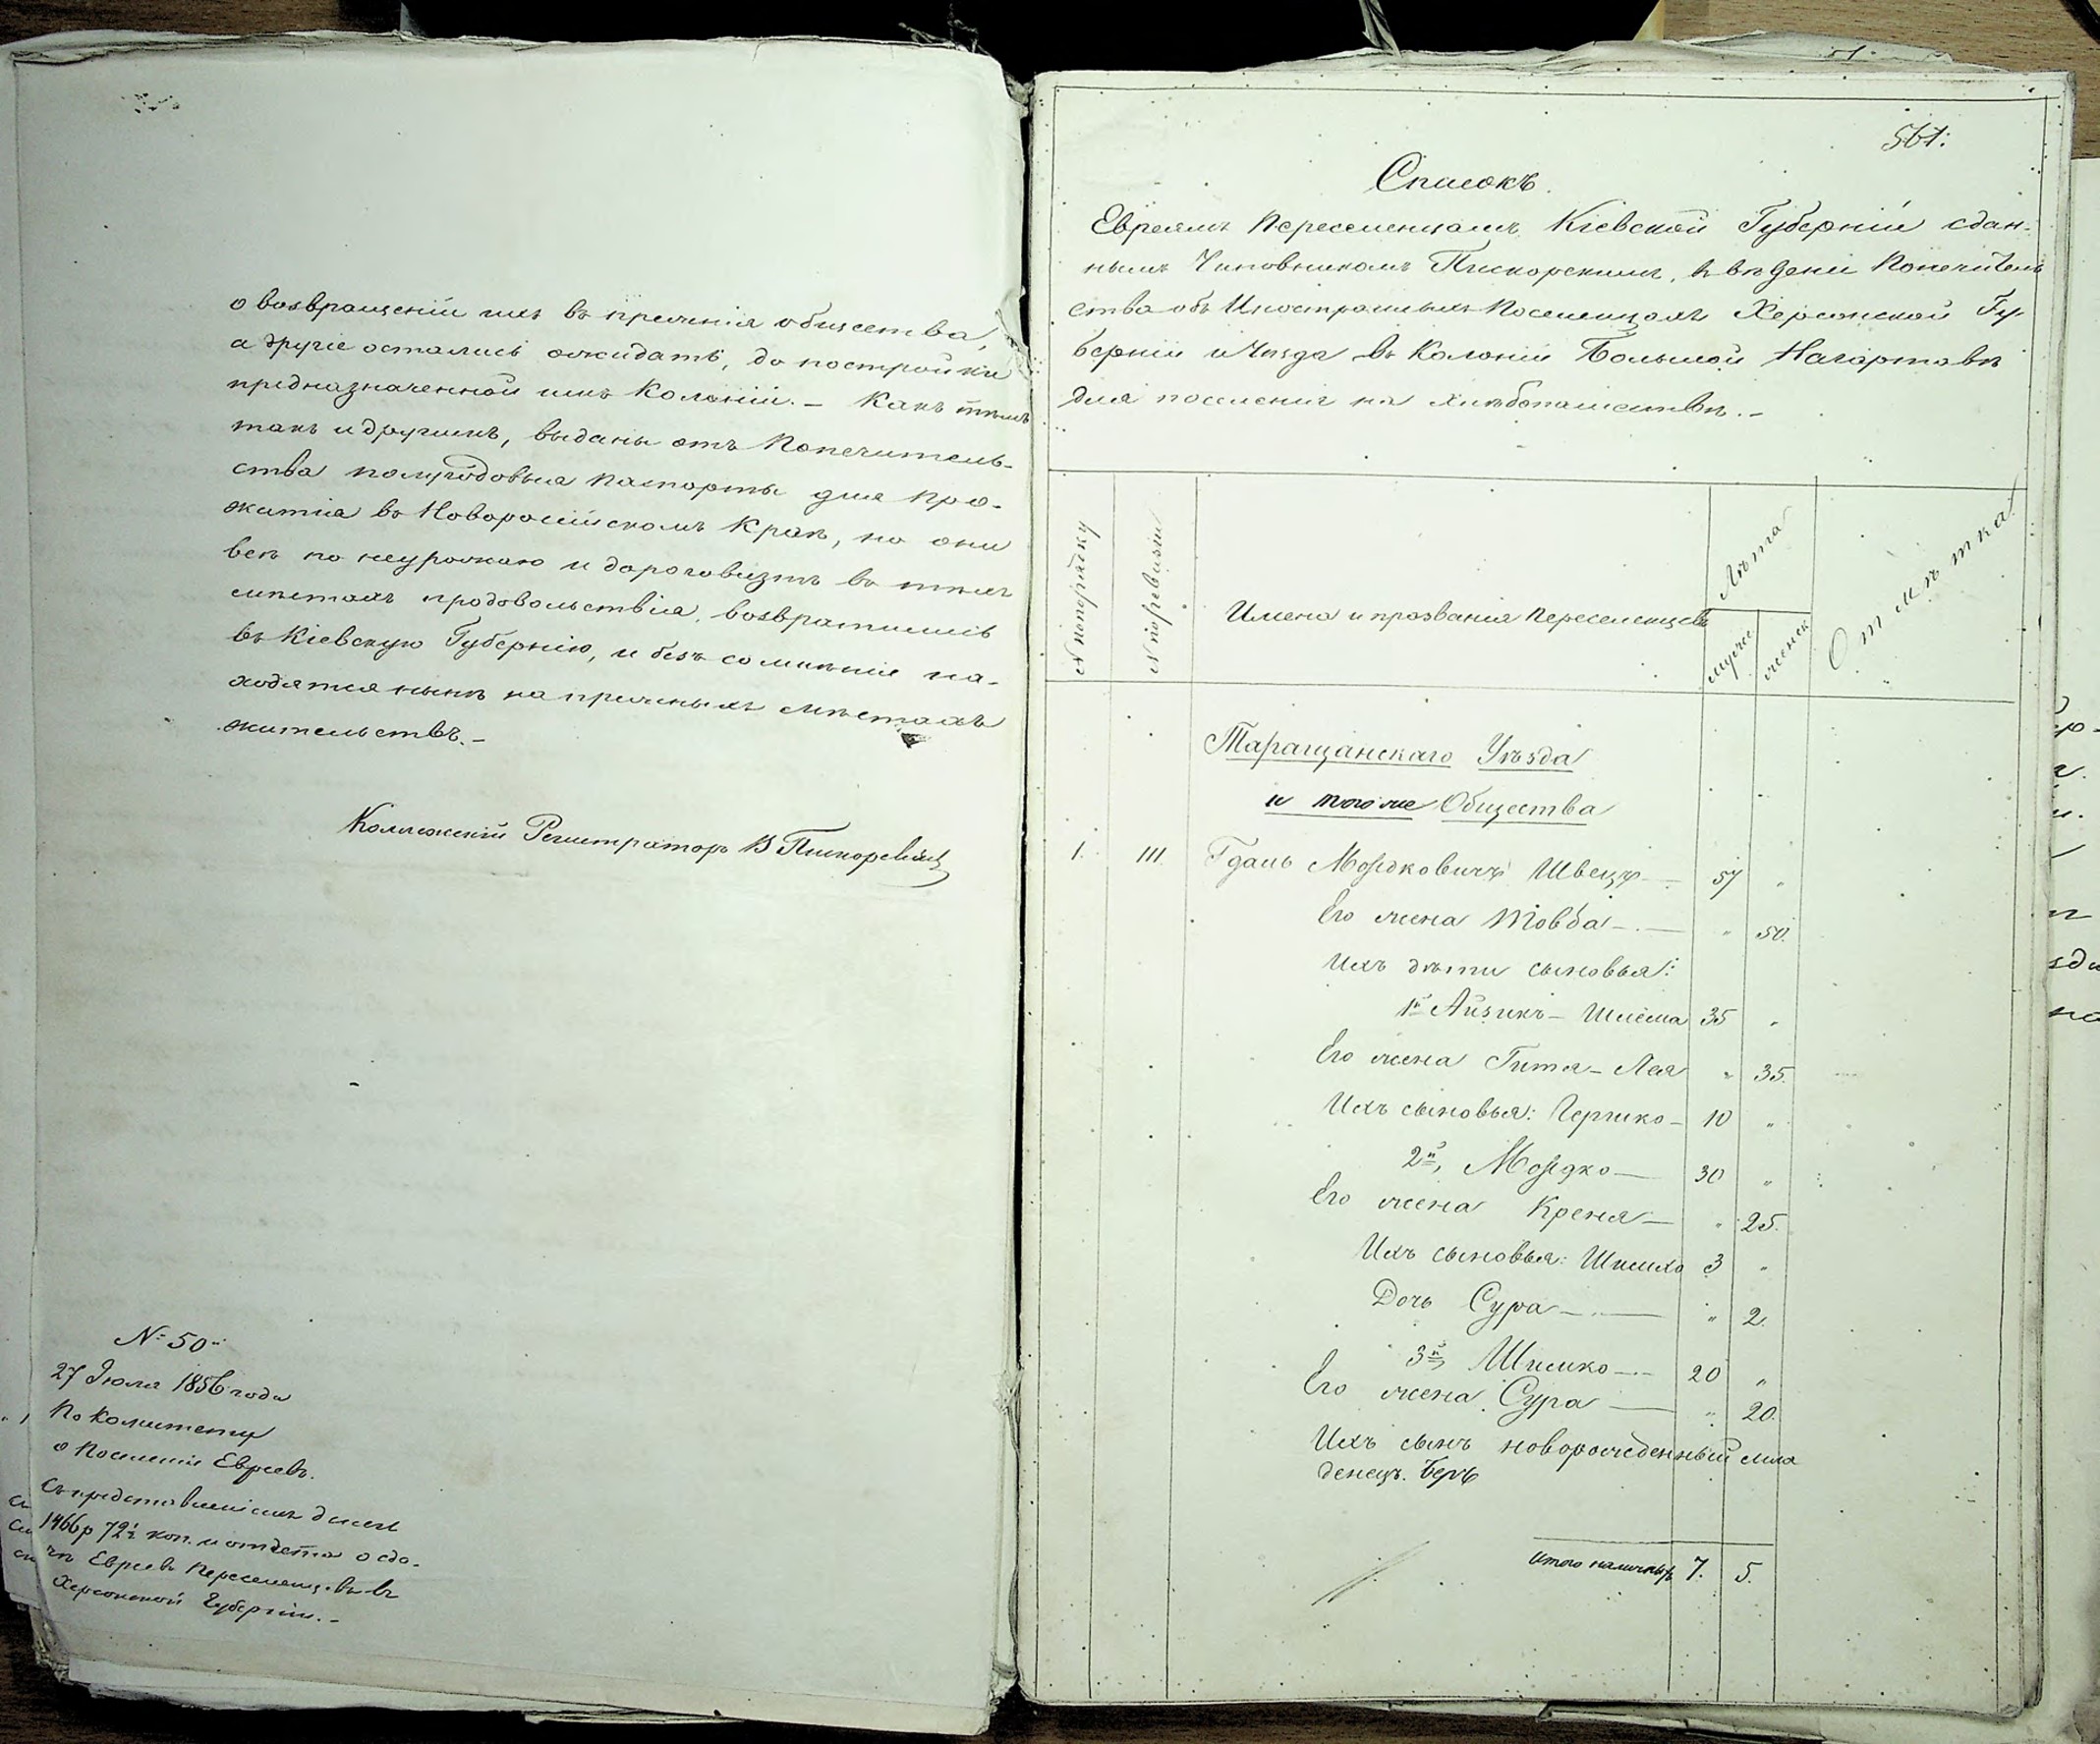 о возвращеніи ихъ въ прежнія общества,
а другіе остались ожидать, до постройки
предназначенной имъ Колоніи. – Какъ тѣмъ
такъ и другимъ, выданы отъ Попечитель-
ства полугодовыя паспорты для про-
житія въ Новороссійскомъ Краѣ, но они
всѣ по неурожаю и дороговизнѣ въ тѣхъ
мѣстахъ продовольствія, возвратились
въ Кіевскую Губернію, и безъ сомнѣнія на-
ходятся нынѣ на прежнихъ мѣстахъ
жительствъ. –
Коллежскій Регистраторъ В Пискорскій
№ 50
27 Іюля 1856 года
По Комитету
о Поселеніи Евреевъ.
Съ представленіемъ денегъ
1466 р 72½ коп. и отчета о сда-
чѣ Евреевъ Переселенцевъ въ
Херсонской Губерніи. –
561.
Списокъ
Евреямъ Переселенцамъ Кіевской Губерніи сдан-
нымъ Чиновникомъ Пискорскимъ, въ вѣденіе Попечитель
ства объ Иностранныхъ Поселенцахъ Херсонской Гу-
берніи и Уѣзда въ Колоніи Большой Нагартавѣ
для поселенія на хлѣбопашествѣ. –
№ по порядку
№ по ревизіи
Имена и прозванія Переселенцевъ
Лѣта
мужс
женск
Отмѣтка
Таращанскаго Уѣзда
и того же Общества
1. 111. Гдаль Мордковичъ Швецъ — 57 "
Его жена Товба — " 50.
Ихъ дѣти сыновья:
1й Айзикъ – Шлема 35 "
Его жена Гитя – Лея " 35.
Ихъ сыновья: Гершко – 10 "
2й, Мордко — 30 "
Его жена Креня — " 25.
Ихъ сыновья: Шимхо 3 "
Дочь Сура — " 2.
3й, Шимко — 20 "
Его жена Сура — " 20.
Ихъ сынъ новорожденный мла
денецъ. Беръ
Итого наличныхъ 7. 5.